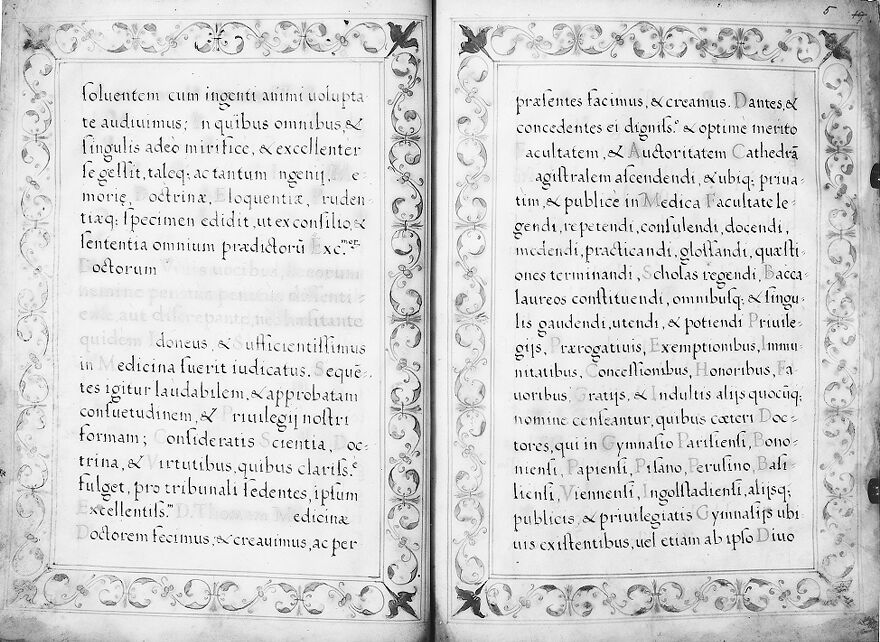 soluentem cum ingenti animi uolupta-
te audiuimus; In quibus omnibus, &
singulis adeò mirifice, & excellenter
se gessit, taleq; ac tantum ingenij, Me-
morię, Doctrinæ, Eloquentiæ, Pruden-
tiæq; specimen edidit, ut ex consilio, &
sententia omnium prædictorū Exc.
Doctorum Viuis uocibus,
nemine penitus dissenti-
ente, aut discrepante, nec hæsitante
quidem Idoneus, & Sufficientissimus
in Medicina fuerit iudicatus. Sequē-
tes igitur laudabilem, & approbatam
consuetudinem, & Priuilegij nostri
formam; Consideratis Scientia, Doc-
trina, & Virtutibus, quibus clariss.e
fulget, pro tribunali sedentes, ipsum
Excellentiss.m D. Thomam Medicinæ
Doctorem fecimus; & creauimus, ac per
5
præsentes facimus, & creamus. Dantes, &
concedentes ei digniss.e & optimè merito
Facultatem, & Auctoritatem Cathedrā
Magistralem ascendendi, & ubiq; priua-
tim, & publicè in Medica Facultate le-
gendi, repetendi, consulendi, docendi,
medendi, practicandi, glossandi, quæsti-
ones terminandi, Scholas regendi, Bacca-
laureos constituendi, omnibusq; & singu-
lis gaudendi, utendi, & potiendi Priuile-
gijs, Prærogatiuis, Exemptionibus, Immu-
nitatibus, Concessionibus, Honoribus, Fa-
uoribus, Gratijs, & Indultis alijs quocūq;
nomine censeantur, quibus cæteri Doc-
tores, qui in Gymnasio Parisiensi, Bono-
niensi, Papiensi, Pisano, Perusino, Basi-
liensi, Viennensi, Ingolstadiensi, alijsq;
publicis, & priuilegiatis Gymnasijs ubi-
uis existentibus, uel etiam ab ipso Diuo